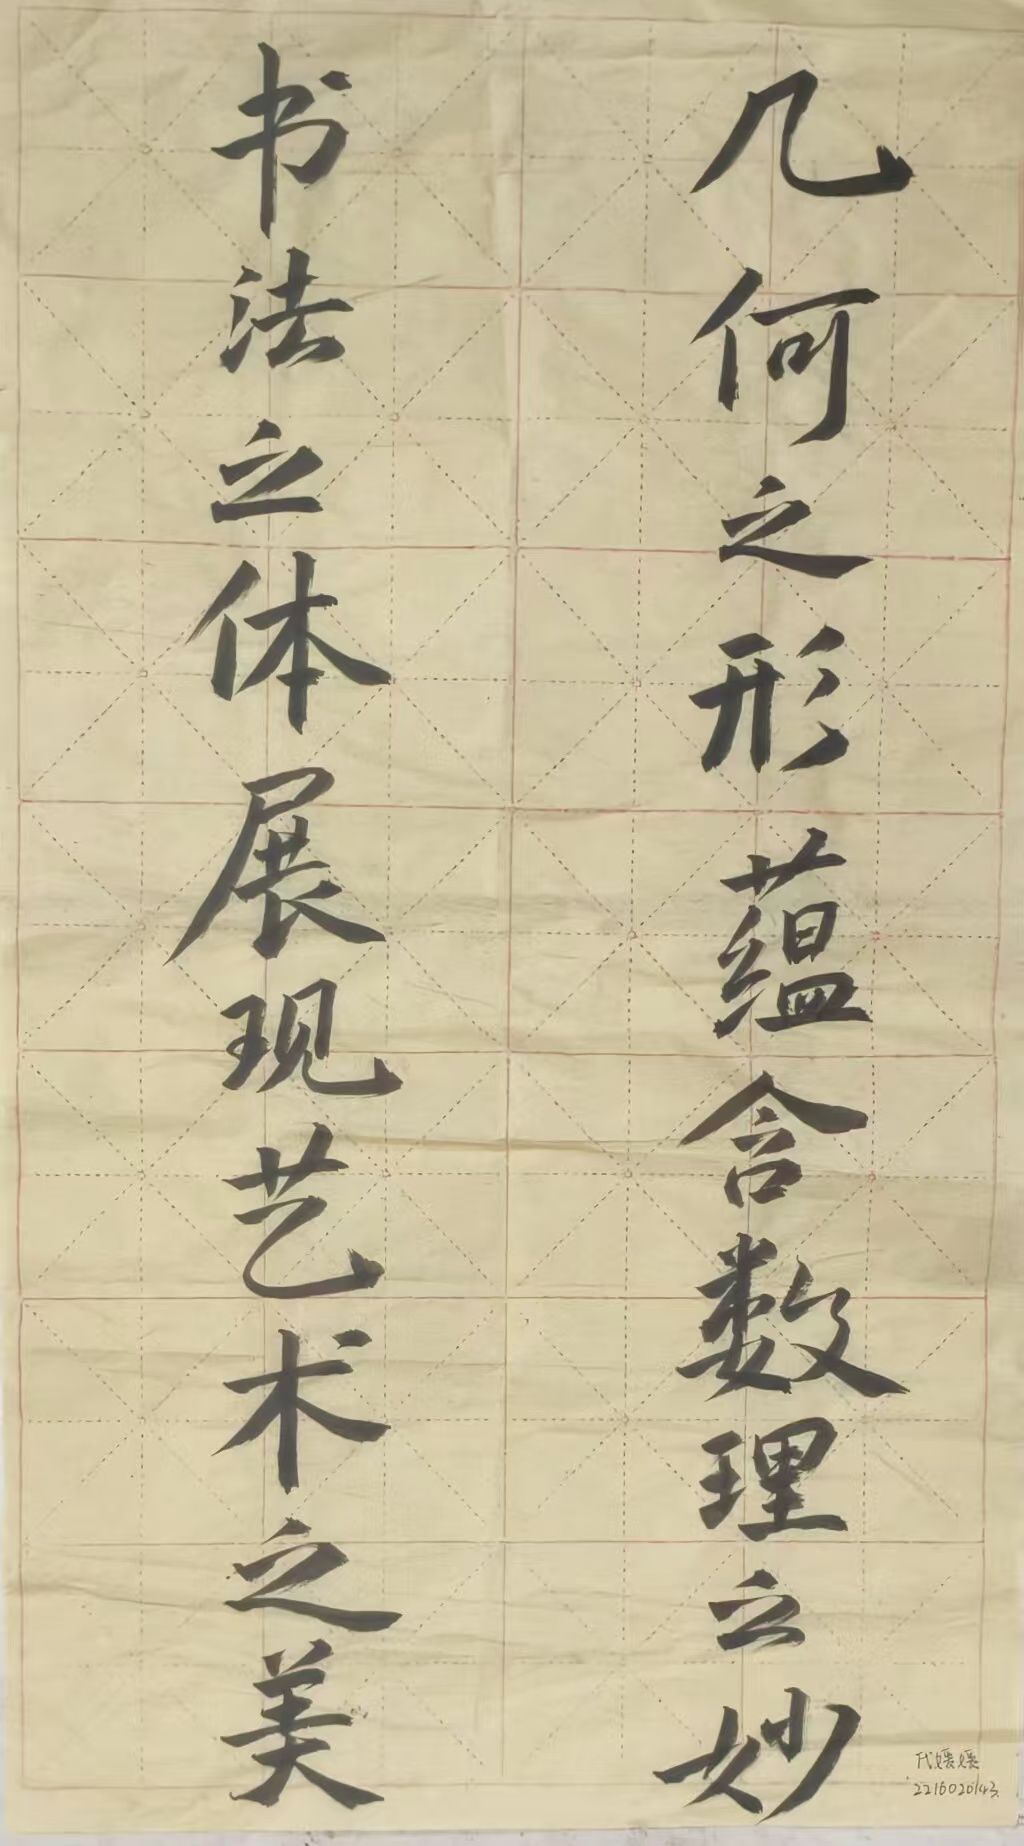 几何之形蕴含数理之妙
书法之体展现艺术之美
代媛媛
2216020143